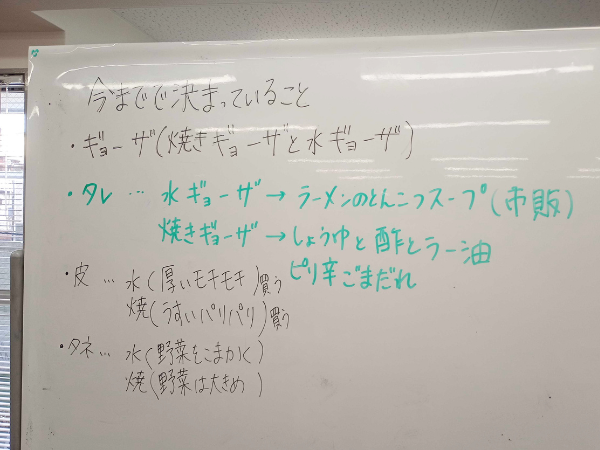 今までで決まっていること
・ギョーザ(焼きギョーザと水ギョーザ)
・タレ… 水ギョーザ→ラーメンのとんこつスープ(市販)
焼きギョーザ→しょうゆと酢とラー油
ピリ辛ごまだれ
・皮… 水(厚いモチモチ)買う
焼(うすいパリパリ)買う
・タネ… 水(野菜をこまかく)
焼(野菜は大きめ)